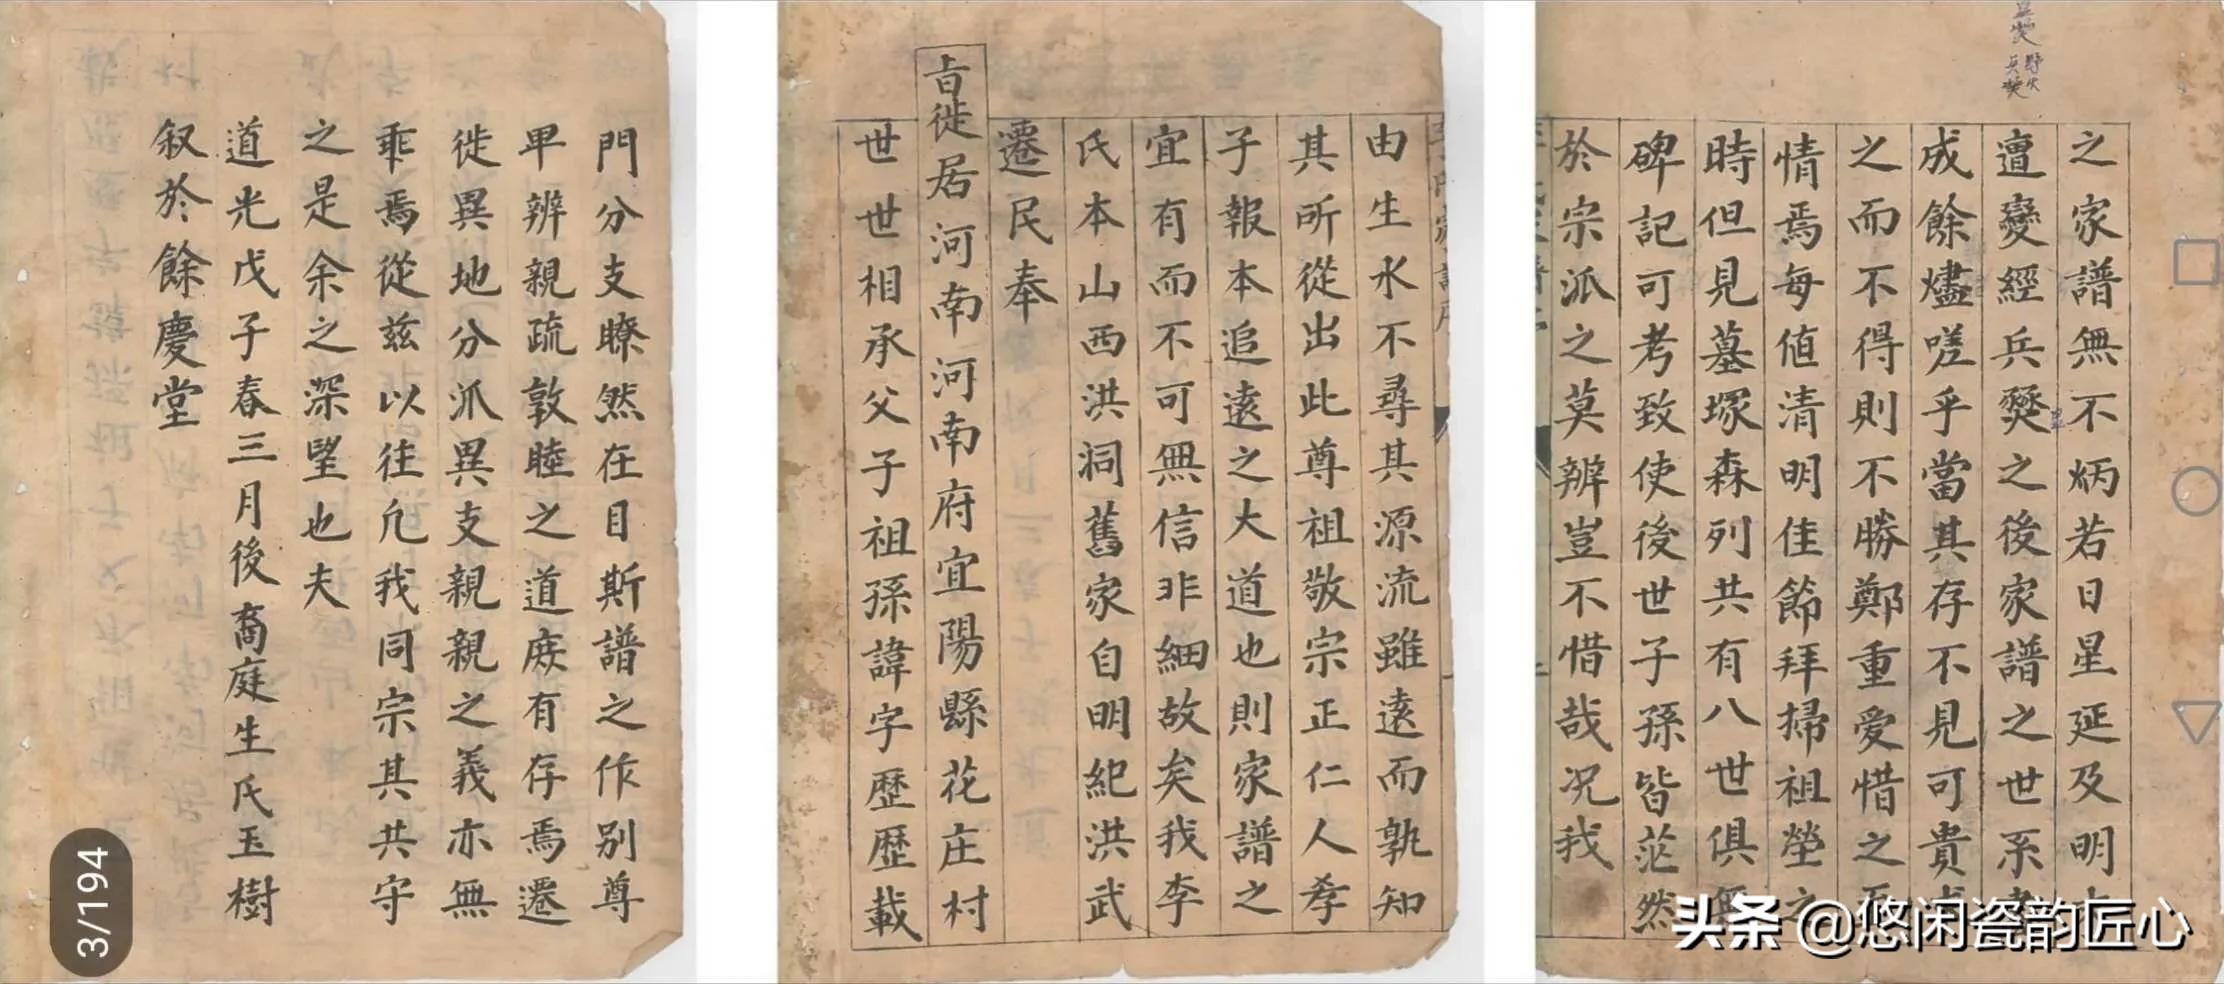 之家譜無不炳若日星延及明
遭變經兵燹之後家譜之世系
成餘燼嗟乎當其存不見可貴
之而不得則不勝鄭重愛惜之
情焉每值清明佳節拜掃祖塋之
時但見墓塚森列共有八世俱無
碑記可考致使後世子孫皆茫然
於宗派之莫辨豈不惜哉况我
由生水不尋其源流雖遠而孰知
其所從出此尊祖敬宗正仁人孝
子報本追遠之大道也則家譜之
宜有而不可無信非細故矣我李
氏本山西洪洞舊家自明紀洪武
遷民奉
旨徙居河南河南府宜陽縣花庄村
世世相承父子祖孫諱字歷歷載
門分支瞭然在目斯譜之作别尊
卑辨親疏敦睦之道庶有存焉遷
徙異地分派異支親親之義亦無
乖焉從兹以往凡我同宗其共守
之是余之深望也夫
道光戊子春三月後裔庭生氏玉樹
叙於餘慶堂
3/194
头条@悠闲瓷韵匠心